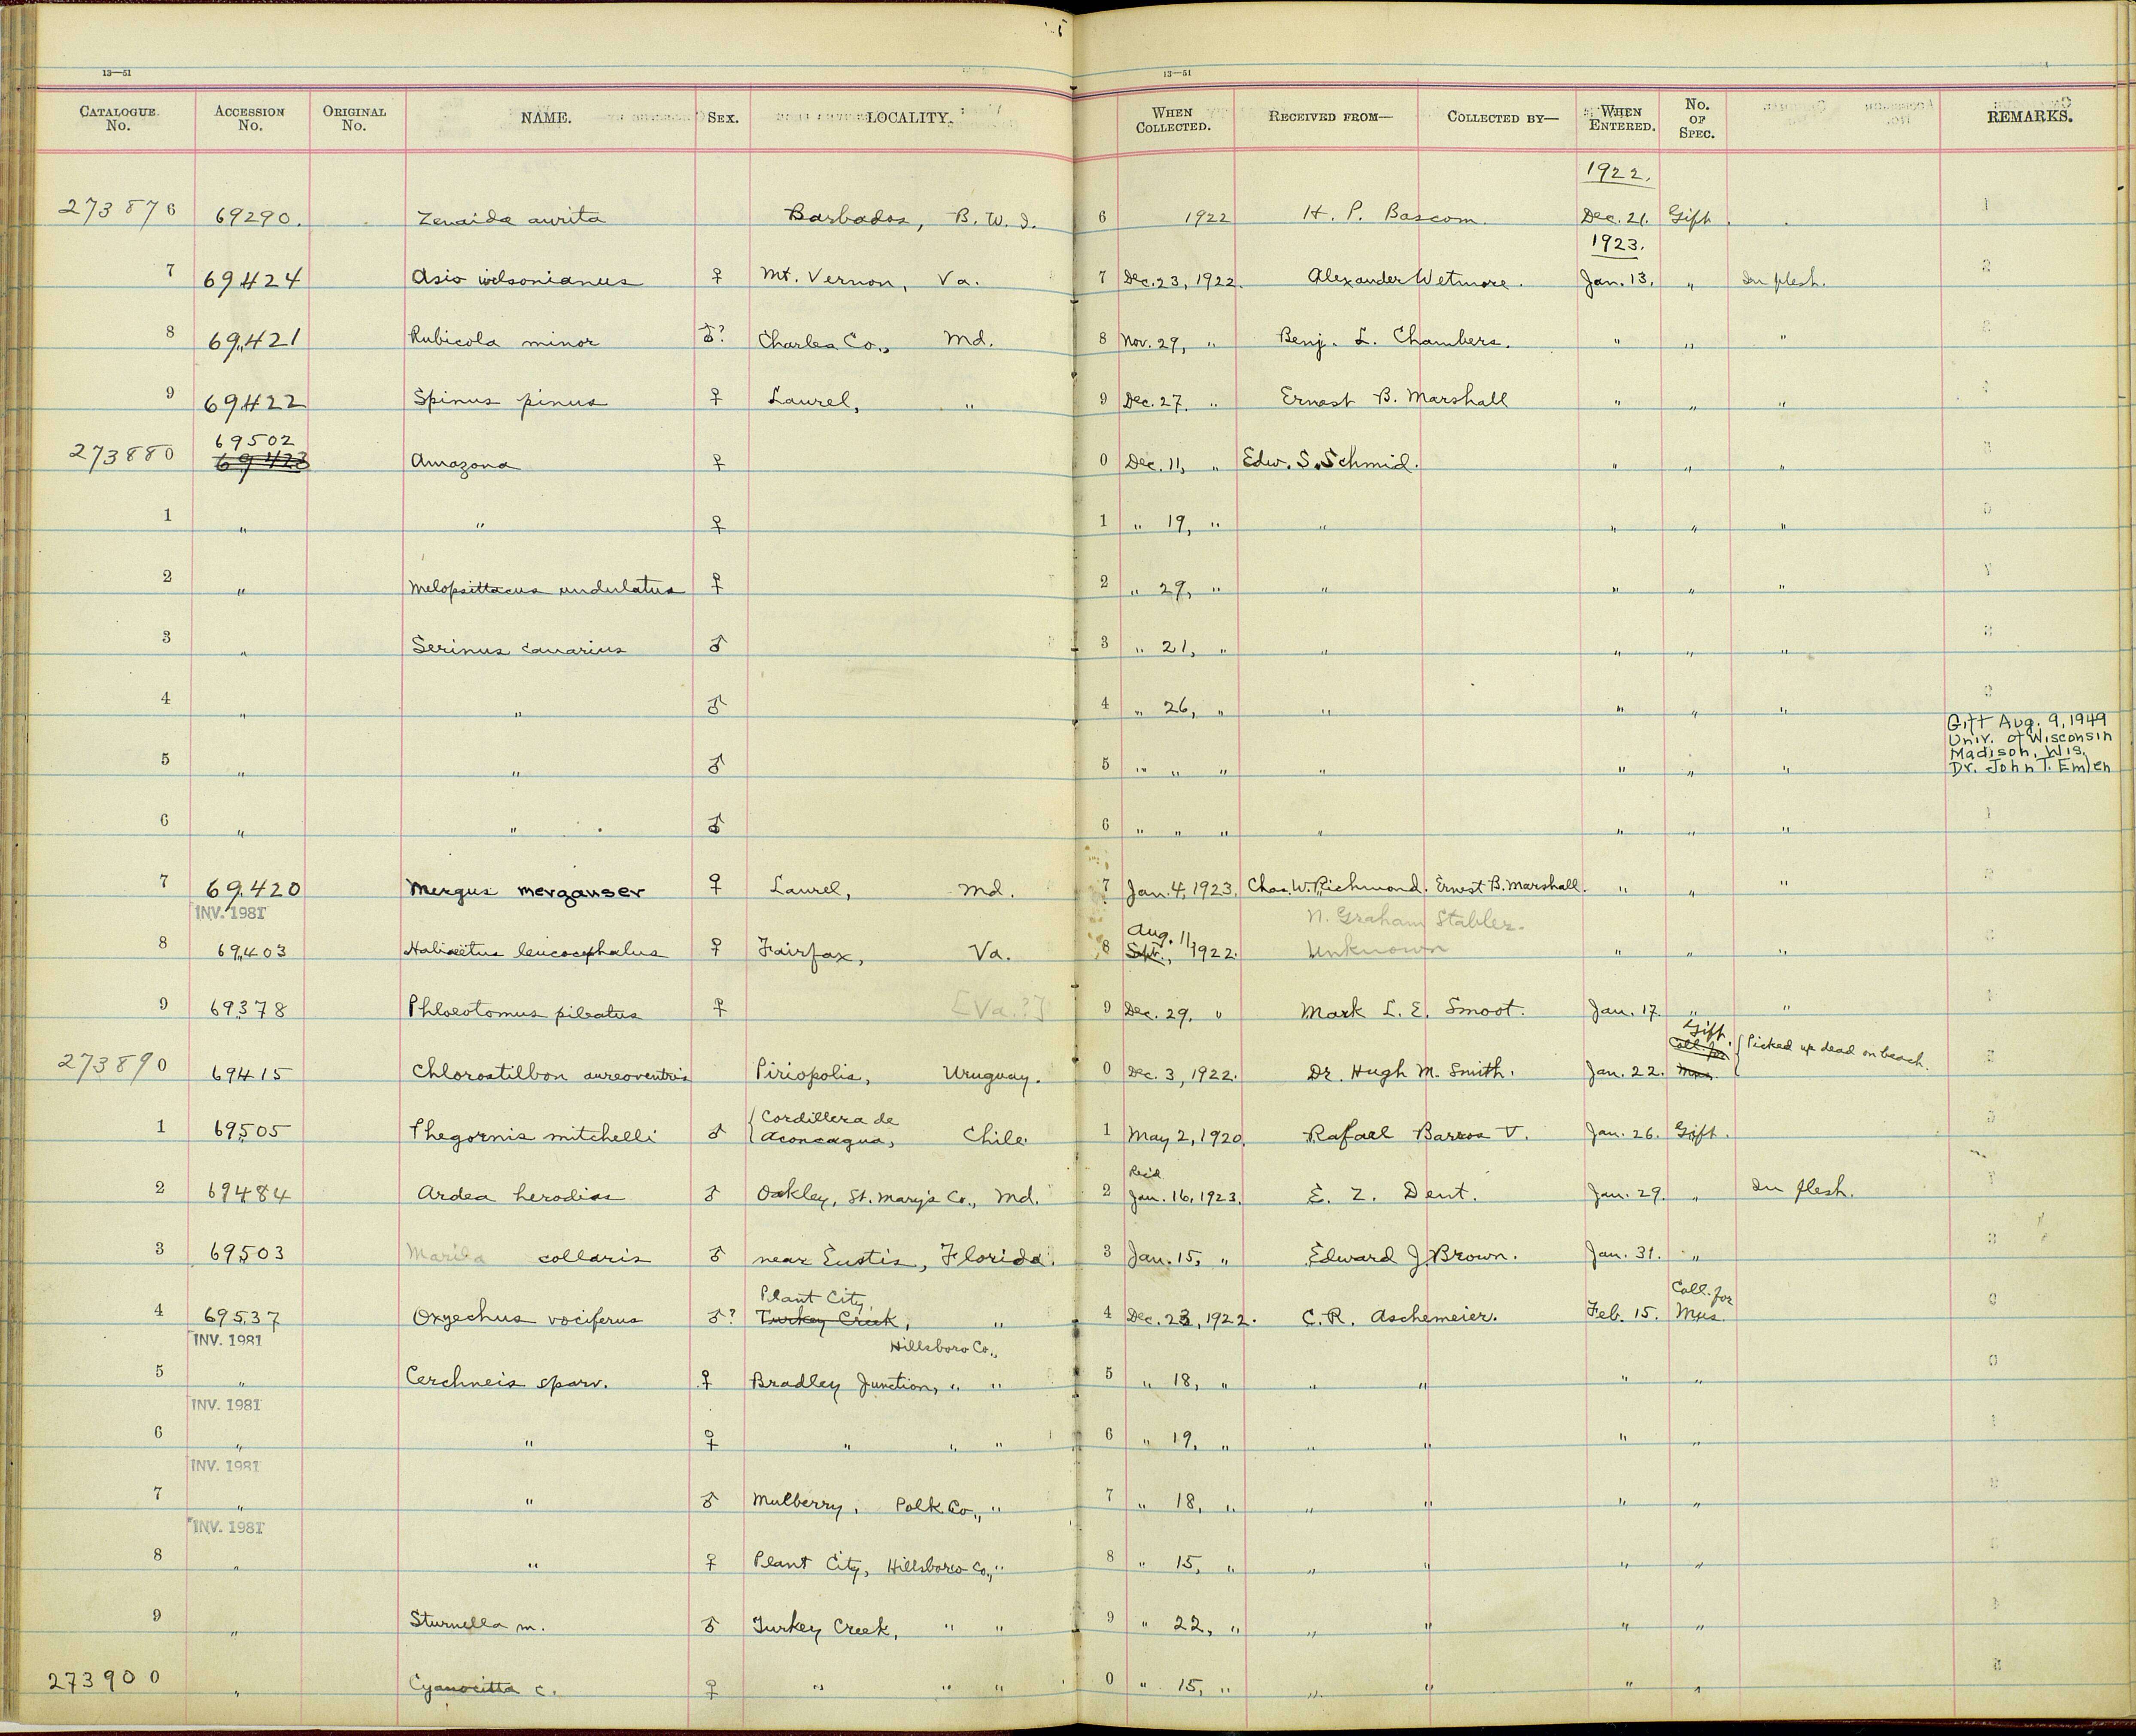 13—51 13—51
CATALOGUE No. ACCESSION No. ORIGINAL No. NAME. SEX. LOCALITY. WHEN COLLECTED. RECEIVED FROM— COLLECTED BY— WHEN ENTERED. No. OF SPEC. REMARKS.
1922.
273876 69290. Zenaida aurita Barbados, B. W. I. 6 1922 H. P. Bascom. Dec. 21. Gift
1923.
7 69424 Asio wilsonianus ♀ Mt. Vernon, Va. 7 Dec. 23, 1922. Alexander Wetmore. Jan. 13. " In flesh.
8 69421 Rubicola minor ♂? Charles Co., Md. 8 Nov. 29, " Benj. L. Chambers. " " "
9 69422 Spinus pinus ♀ Laurel, " 9 Dec. 27. " Ernest B. Marshall " " "
69502
273880 69423 Amazona ♀ 0 Dec. 11, " Edw. S. Schmid. " " "
1 " " ♀ 1 " 19, " " " " "
2 " Melopsittacus undulatus ♀ 2 " 29, " " " " "
3 " Serinus canarius ♂ 3 " 21, " " " " "
4 " " ♂ 4 " 26, " " " " "
Gift Aug. 9, 1949
Univ. of Wisconsin
Madison, Wis.
5 " " ♂ 5 " " " " " " " Dr. John T. Emlen
6 " " ♂ 6 " " " " " " "
7 69,420 Mergus merganser ♀ Laurel, Md. 7 Jan. 4, 1923. Chas. W. Richmond. Ernest B. Marshall. " " "
INV. 1981 N. Graham Stabler.
Aug. 11,
8 69403 Haliaëtus leucocephalus ♀ Fairfax, Va. 8 Sept., 1922. Unknown " " "
9 69378 Phloeotomus pileatus ♀ [Va.?] 9 Dec. 29. " Mark L. E. Smoot. Jan. 17. " "
Gift.
Coll. for Picked up dead on beach.
273890 69415 Chlorostilbon aureoventris Piriopolis, Uruguay. 0 Dec. 3, 1922. Dr. Hugh M. Smith. Jan. 22. Mus.
Cordillera de
1 69505 Phegornis mitchelli ♂ Aconcagua, Chile. 1 May 2, 1920. Rafael Barros V. Jan. 26. Gift.
Rec'd
2 69484 Ardea herodias ♂ Oakley, St. Mary's Co., Md. 2 Jan. 16, 1923. E. Z. Dent. Jan. 29. " In flesh.
3 69503 Marila collaris ♂ near Eustis, Florida. 3 Jan. 15, " Edward J. Brown. Jan. 31. "
Plant City, Coll. for
4 69537 Oxyechus vociferus ♂? Turkey Creek, " 4 Dec. 23, 1922. C. R. Aschemeier. Feb. 15. Mus.
INV. 1981 Hillsboro Co.,
5 " Cerchneis sparv. ♀ Bradley Junction, " " 5 " 18, " " " " "
INV. 1981
6 " " ♀ " " " 6 " 19, " " " " "
INV. 1981
7 " " ♂ Mulberry, Polk Co., " 7 " 18, " " " " "
INV. 1981
8 " " ♀ Plant City, Hillsboro Co., " 8 " 15, " " " " "
9 " Sturnella m. ♂ Turkey Creek, " " 9 " 22, " " " " "
273900 " Cyanocitta c. ♀ " " " 0 " 15, " " " " "